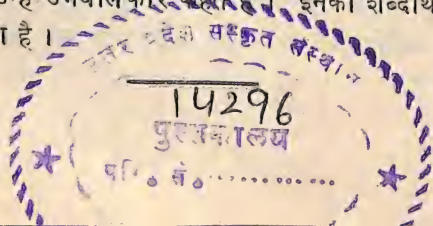 उभयालंकार कहते हैं। इनका शब्दार्थ
है।
उत्तर प्रदेश संस्कृत संस्थान
14296
पुस्तकालय
परि० सं०............